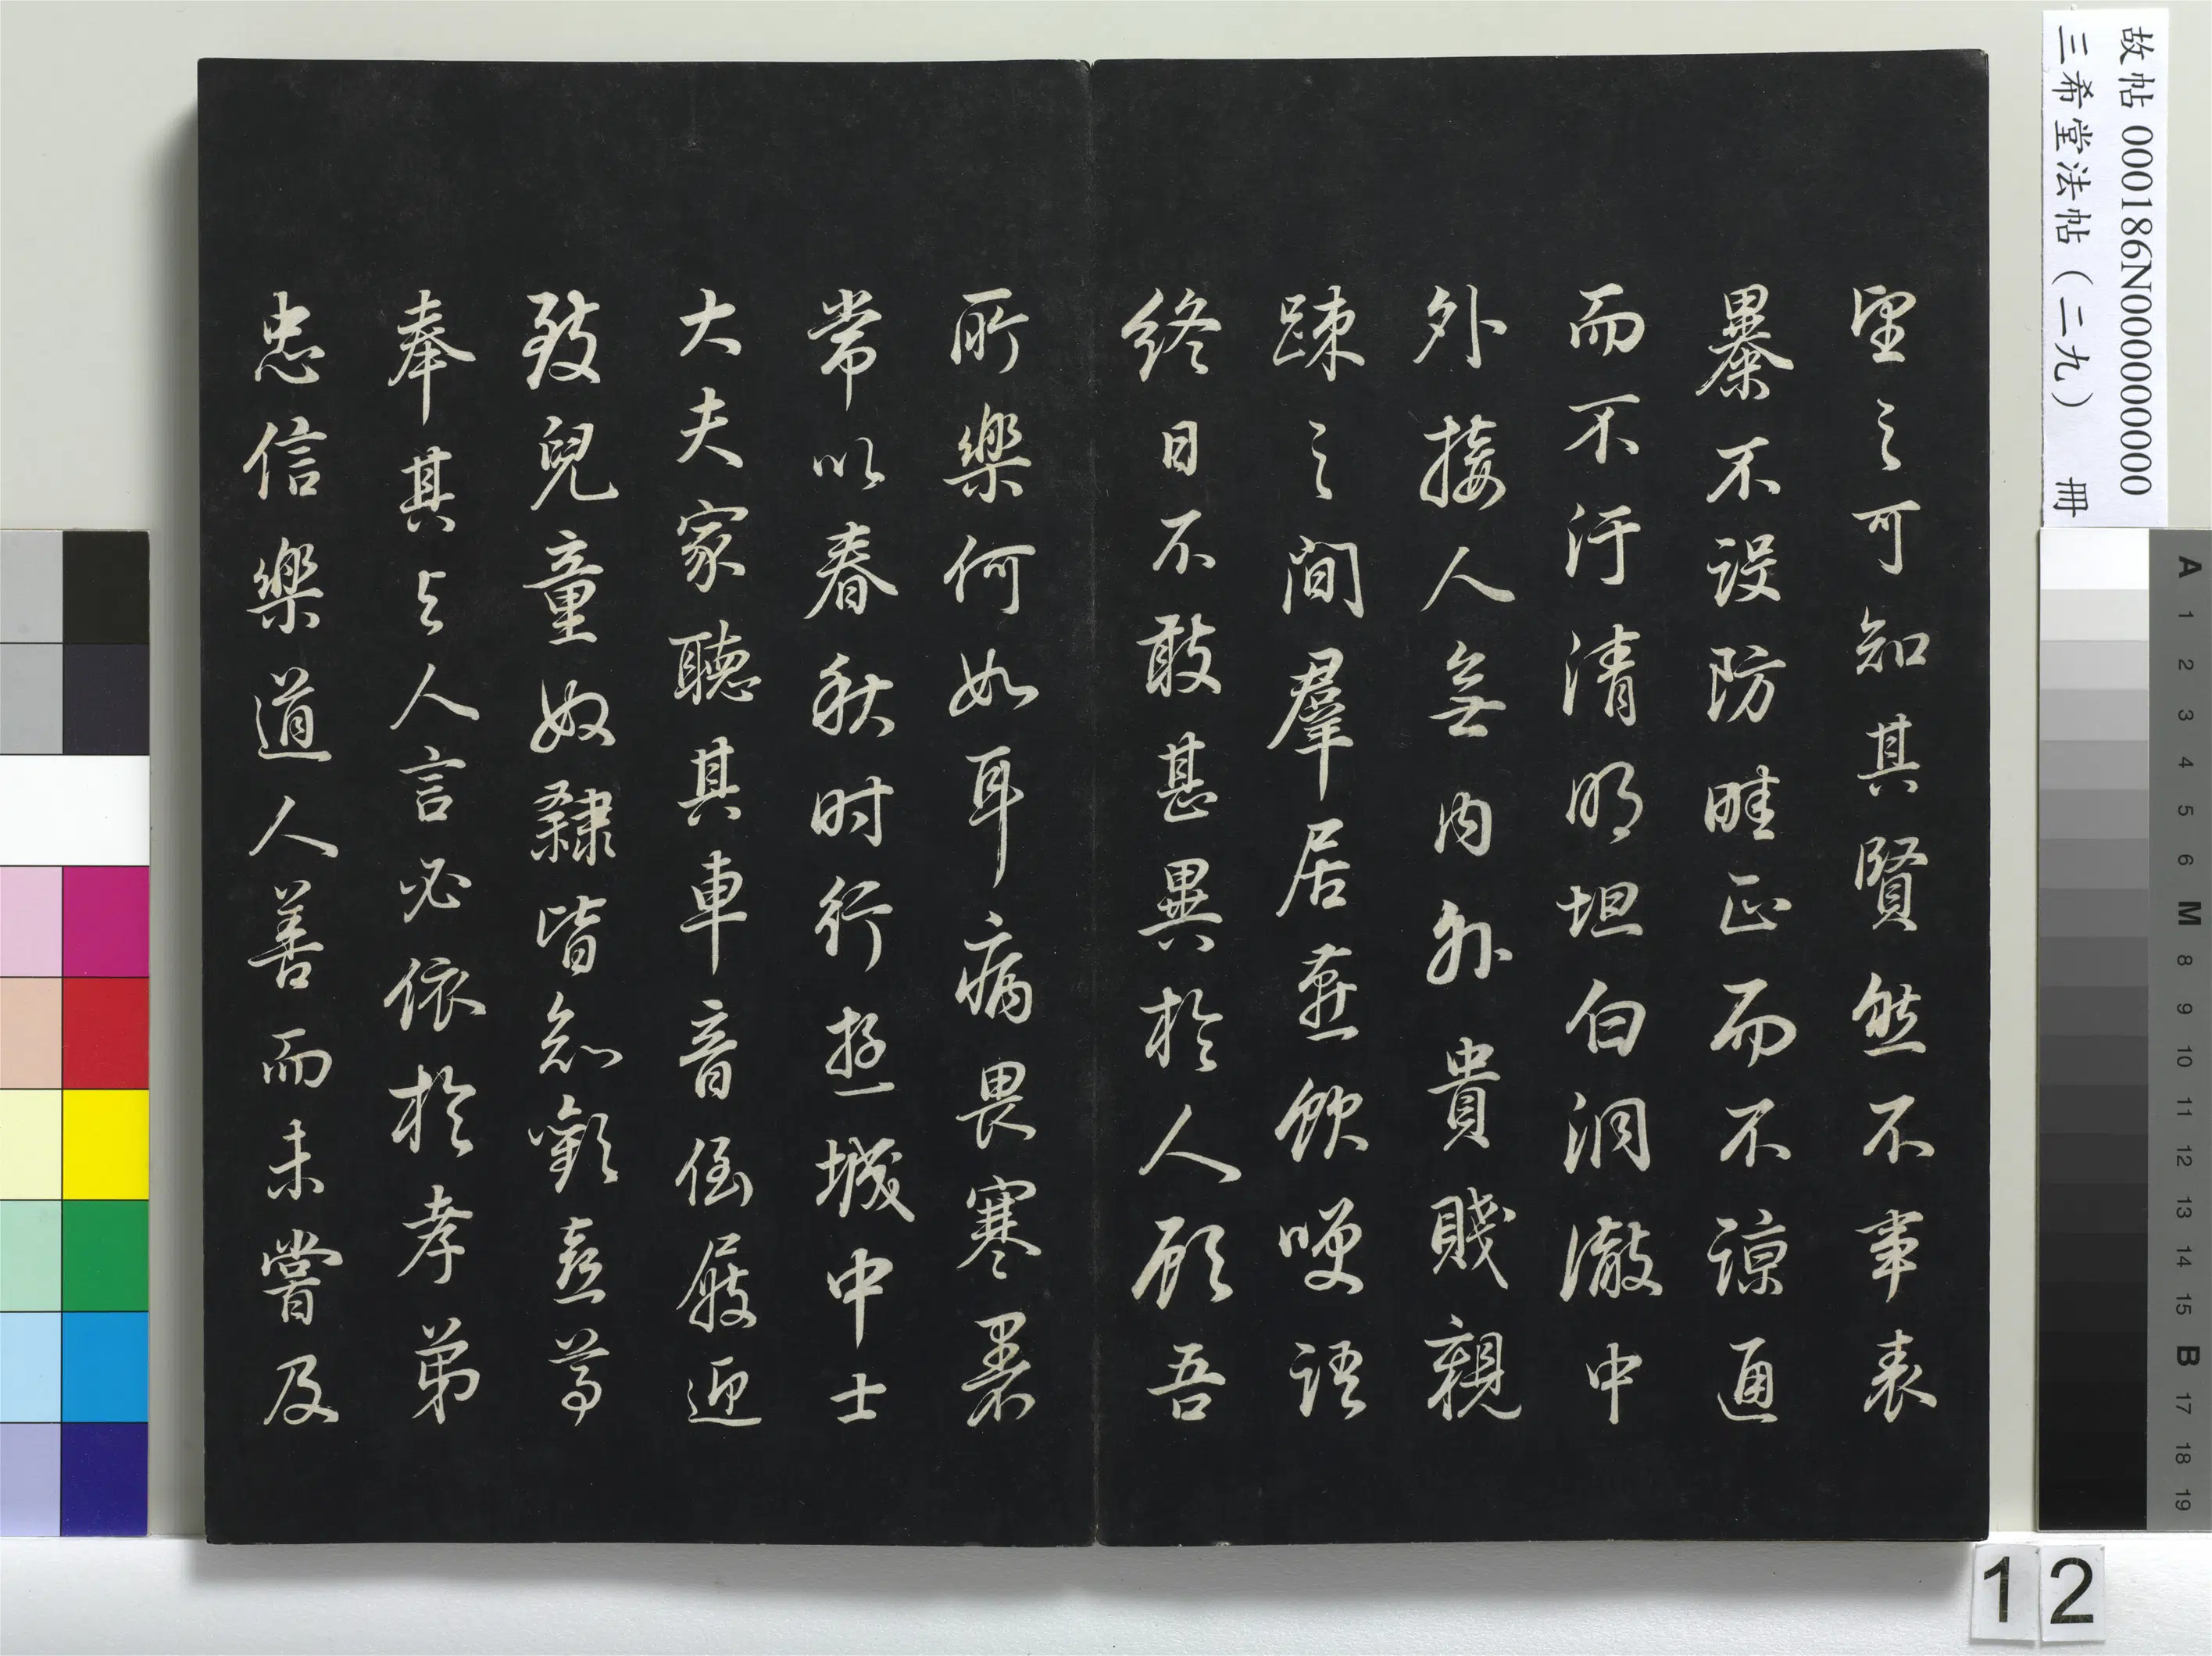 望之可知其賢然不事表
暴不設防畦正而不諒通
而不汙清明坦白洞徹中
外接人無內外貴賤親
踈之間羣居燕飲咲語
終日不敢甚異於人顧吾
所樂何如耳病畏寒暑
常以春秋时行遊城中士
大夫家聽其車音倒屐迎
致兒童奴隸皆知歡喜尊
奉其与人言必依於孝弟
忠信樂道人善而未嘗及
故帖 000186N000000000
三希堂法帖（二九） 冊
A 1 2 3 4 5 6 M 8 9 10 11 12 13 14 15 B 17 18 19
12